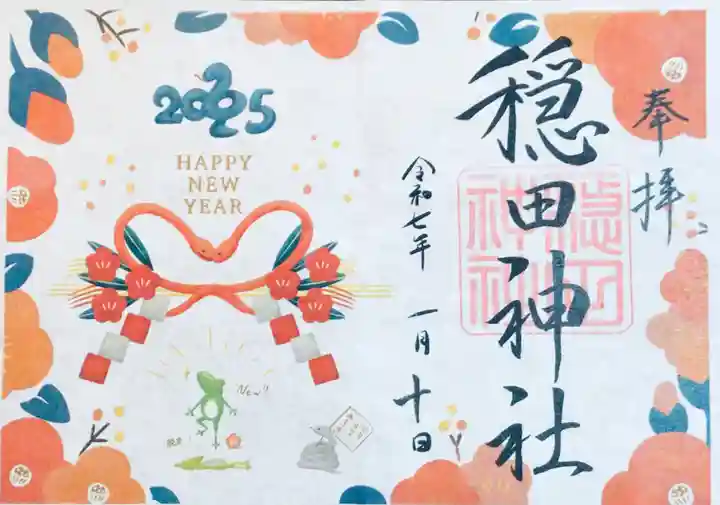 奉拝
穏田神社
穏田神社
令和七年 一月 十日
2025
HAPPY
NEW
YEAR
New!!
脱皮!